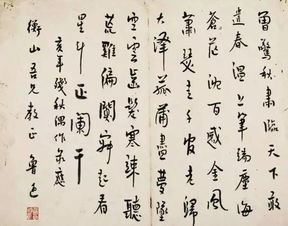 曾驚秋肅臨天下敢
遣春溫上筆端塵海
蒼茫沈百感金風
蕭瑟走千官老歸
大澤菰蒲盡夢墜
空雲齒髮寒竦聽
荒雞偏闃寂起看
星斗正闌干
亥年殘秋偶作录應
衡山吾兄教正 魯迅